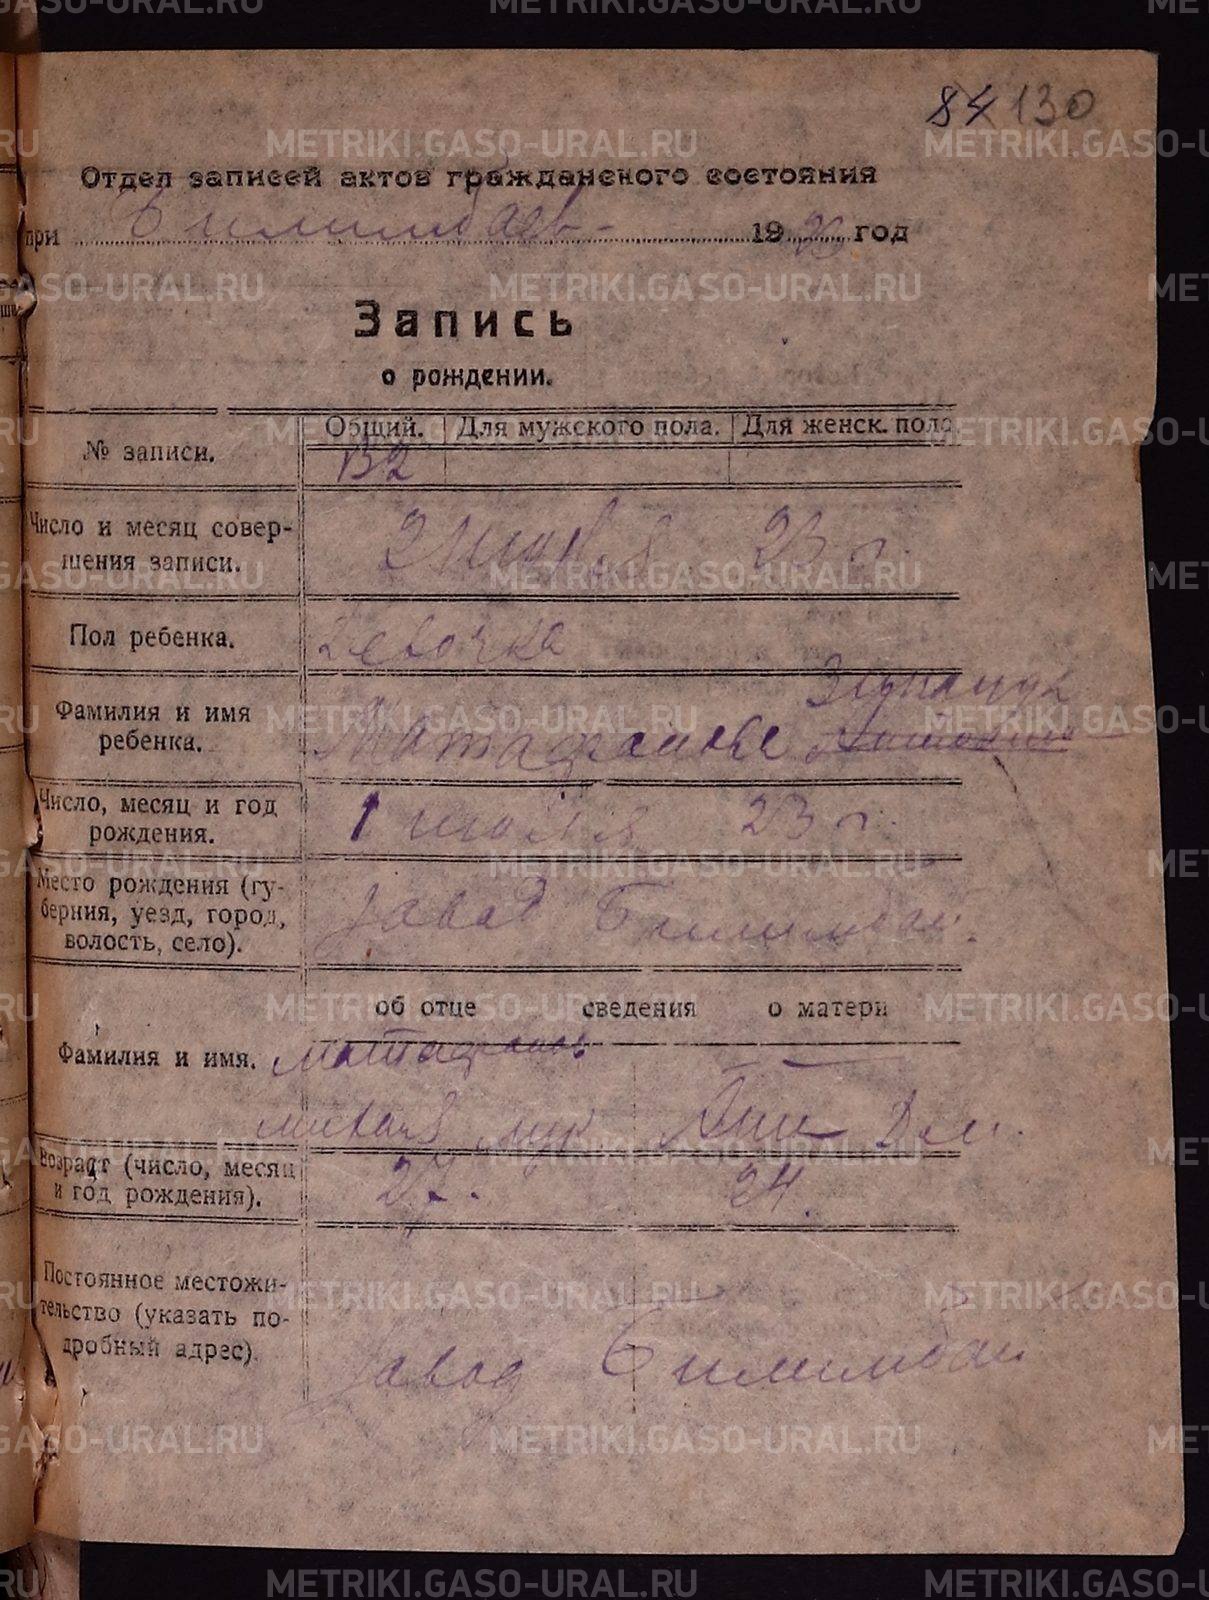 84 130
Отдел записей актов гражданского состояния
при Билимбаев- 1923 год
Запись
о рождении.
№ записи.
Общий. Для мужского пола. Для женск. пола
132
Число и месяц совер-
шения записи.
2 23 г.
Пол ребенка.
Девочка
Фамилия и имя
ребенка.
Зинаида
Матафонова
Число, месяц и год
рождения.
1 июля 23 г.
Место рождения (гу-
берния, уезд, город,
волость, село).
завод Билимбай.
об отце сведения о матери
Фамилия и имя.
Матафонов
Михаил Лук Дм.
Возраст (число, месяц
и год рождения).
27. 24.
Постоянное местожи-
тельство (указать по-
дробный адрес).
завод Билимбай
METRIKI.GASO-URAL.RU